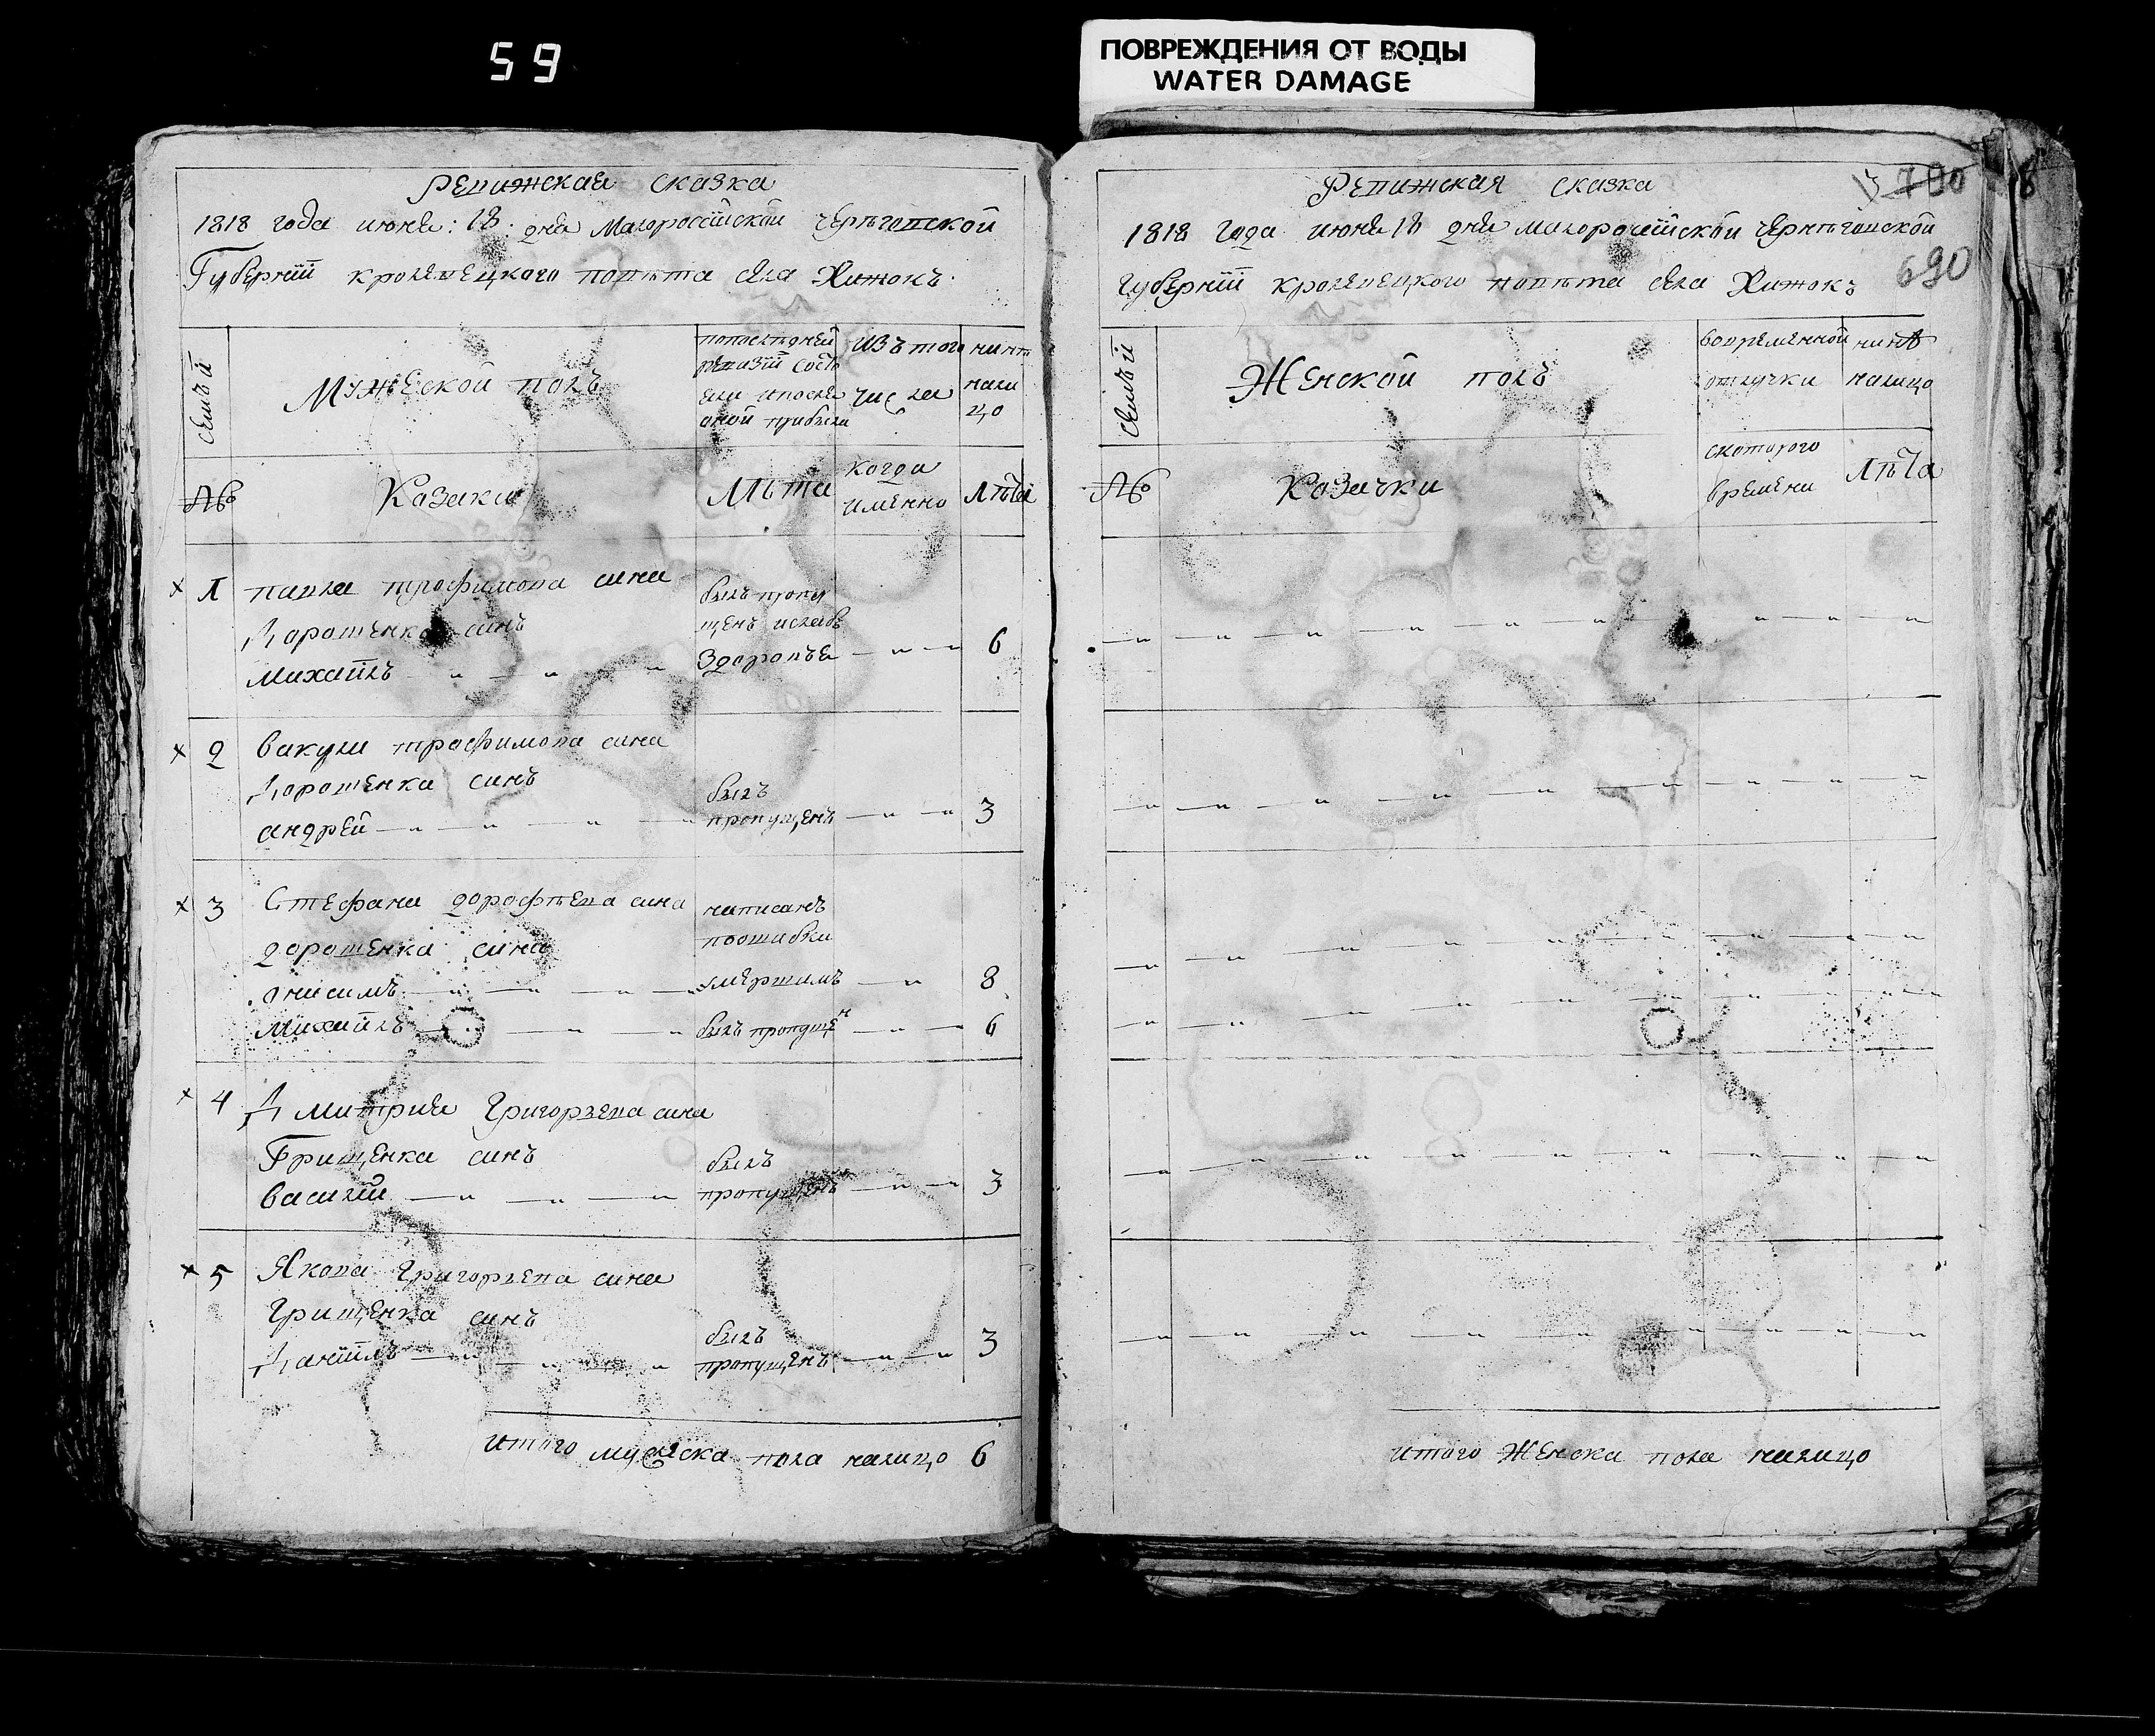 59
ПОВРЕЖДЕНИЯ ОТ ВОДЫ
WATER DAMAGE
Ревижская сказка
1818 года июня: 18: дня Малоросiйской Черниговской
Губернiи кролевецкого повѣта села Хижокъ.
семьи
Мужеской полъ
попоследней
ревизiи состо
яли ипосле
оной прибыли
изъ того
числа
нинѣ
нали
цо
№
Казаки
Лѣта
когда
именно
Лѣта
х 1 павла трофимова сина
Дорошенка синъ
Михайлъ
былъ пропу
щенъ
здоровъя
6
х 2 вакули трофимова сина
Дорошенка синъ
андрей
былъ
пропущенъ
3
х 3 Стефана дорофѣева сина
дорошенка сина
онисимъ
написанъ
поошибки
умершимъ
8
Михайлъ
былъ пропущен
6
х 4 Дмитрия Григорьева сина
Грищенка синъ
василiй
былъ
пропущенъ
3
х 5 Якова Григорьева сина
Грищенка синъ
Данiилъ
былъ
пропущенъ
3
итого мужеска пола налицо 6
Ревижская сказка
790
1818 года июня 18 дня малоросiйской Черниговской
690
Губернiи кролевецкого повѣта села Хижокъ
семьи
Женской полъ
вовременной
отлучки
нинѣ
налицо
№
Козачки
скоторого
времени
Лѣта
итого Женска пола налицо